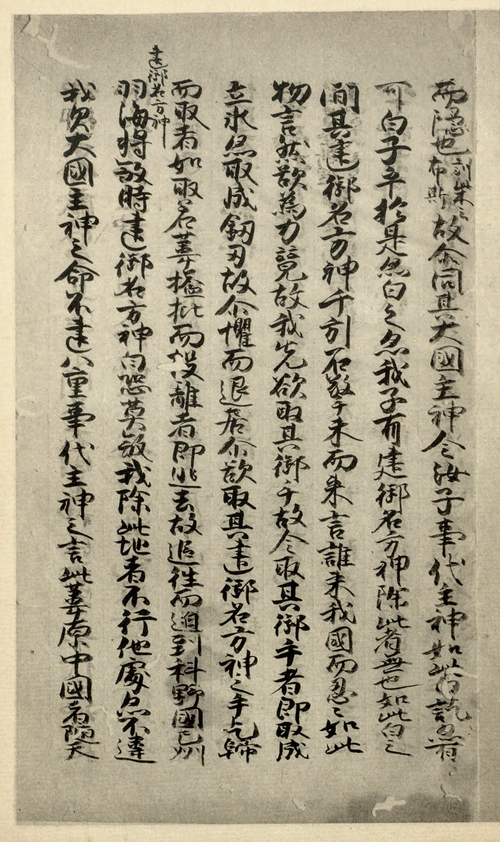 而隠也訓柴云布斯故尒問其大國主神今汝子事代主神如此白訖亦有
可白子乎於是亦白之亦我子有建御名方神除此者無也如此白之
間其建御名方神千引石擎手末而来言誰来我國而忍々如此
物言然欲為力競故我先欲取其御手故令取其御手者即取成
立氷亦取成釼刃故尒懼而退居尒欲取其建御名方神之手乞歸
而取者如取若葦搤批而投離者即逃去故追往而迫到科野國之州
建御名方神
羽海将殺時建御名方神白恐莫敬我除此地者不行他處亦不違
我父大國主神之命不違八重事代主神之言此葦原中國者随天